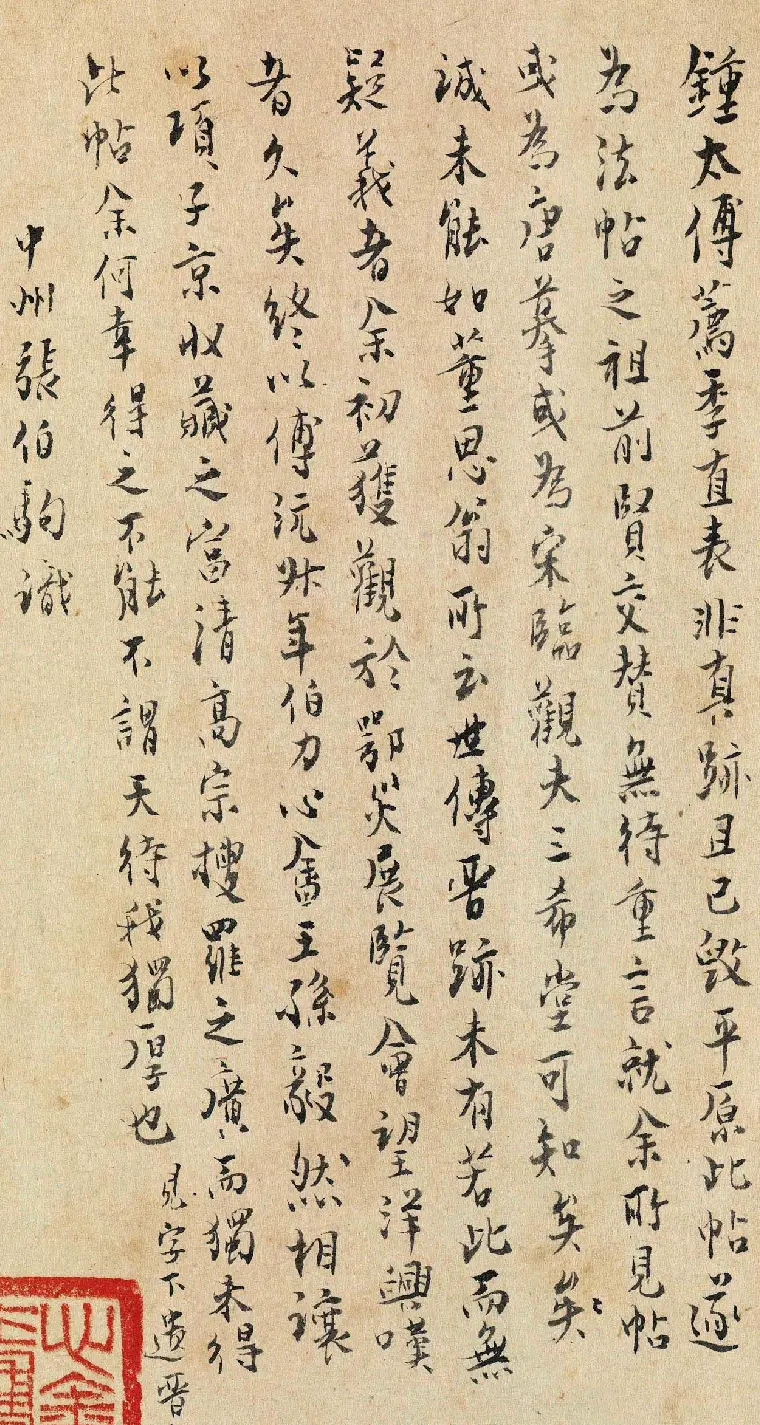 鍾太傅薦季直表非真跡且已毀平原此帖遂
為法帖之祖前賢交贊無待重言就余所見帖
或為唐摹或為宋臨觀夫三希堂可知矣矣
誠未能如董思翁所云世傳晉跡未有若此而無
疑義者余初獲觀於鄂災展覽會望洋興嘆
者久矣終以傅沅叔年伯力心畬王孫毅然相讓
以項子京收藏之富清高宗搜羅之廣而獨未得
此帖余何幸得之不能不謂天待我獨厚也
見字下遺晉
中州張伯駒識